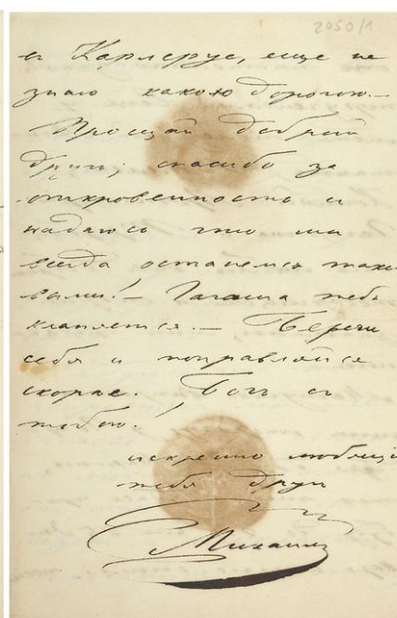 2050/1
и Карлеруе, еще не
знаю какою дорогою.—
Прощай добрый
друг; спасибо за
откровенность и
надѣюсь что мы
всегда останемся таки
выми!— тебѣ
кланяется.— Береги
себя и поправляйся
скорѣе. Богъ съ
тобою!
искренно любящій
тебя другъ
Михаилъ